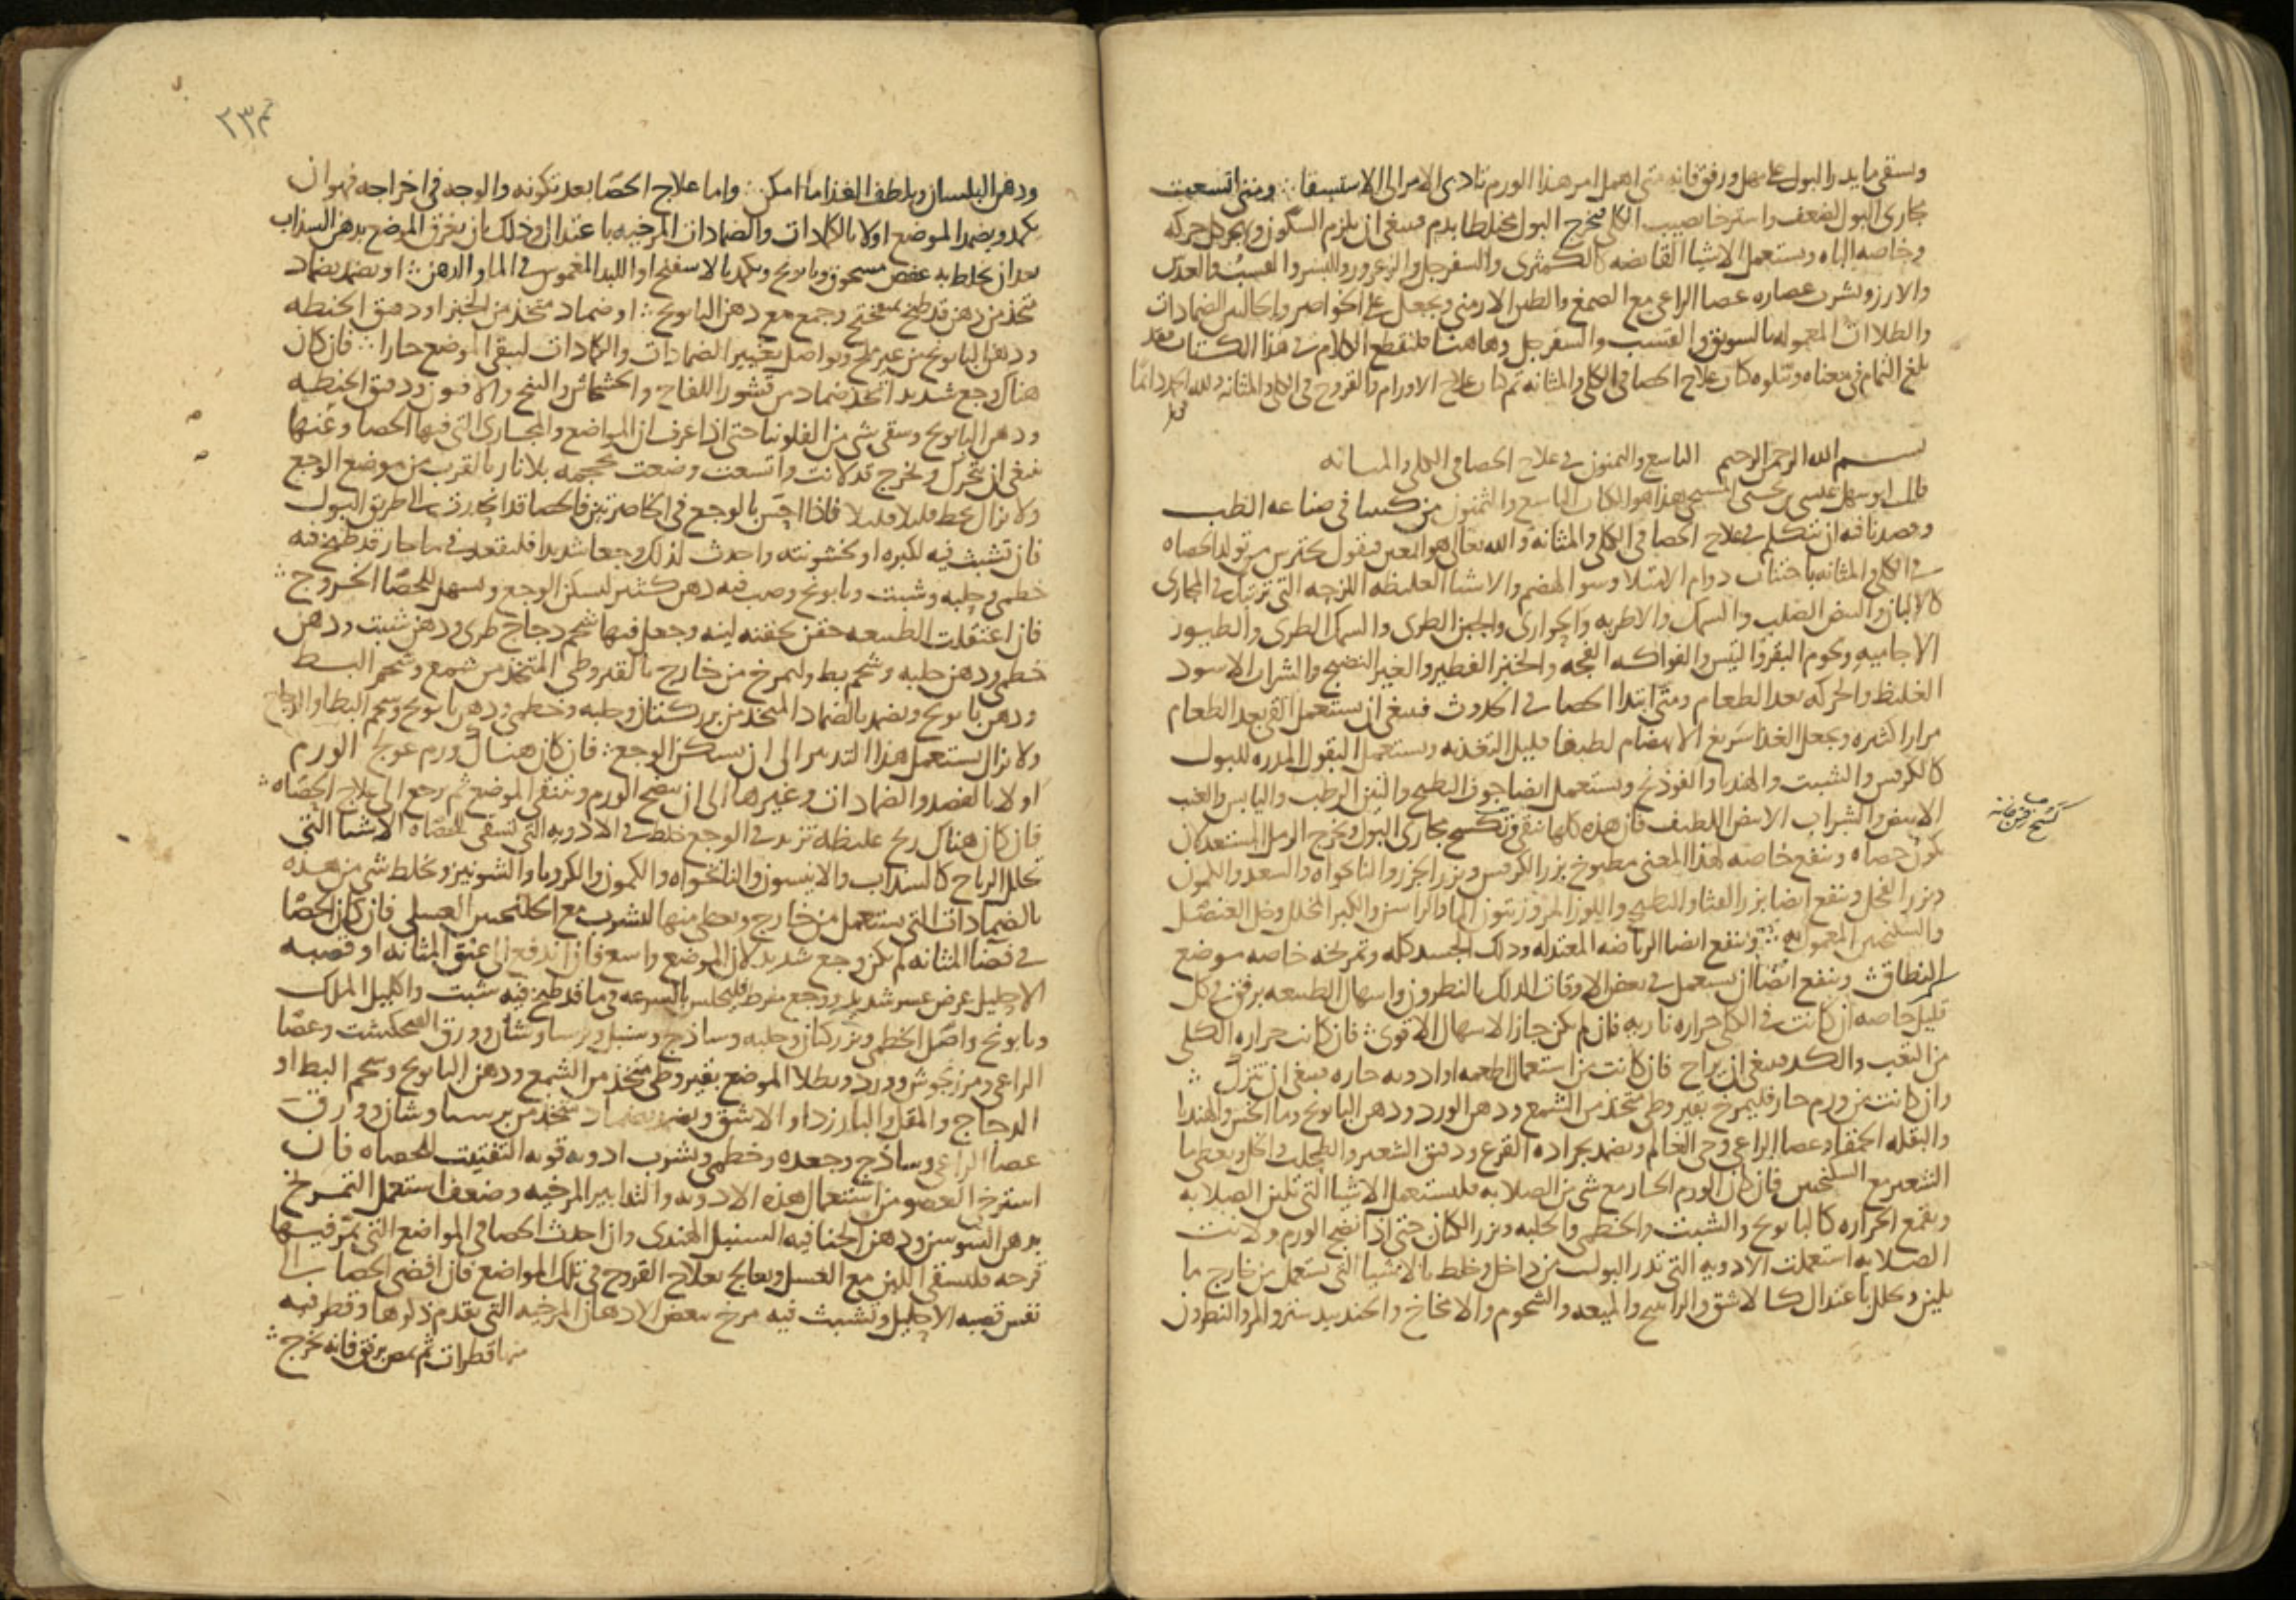 ويسقى ما يدر البول على مهل ورفق فانه متى اهمل امر هذا الورم تادى الامر الى الاستسقا ومتى اتسعت
مجارى البول لضعف واسترخا يصيب الكلى فيخرج البول مختلطا بدم فينبغى ان يلزم السكون ويهجر كل حركه
وخاصه الباه ويستعمل الاشيا القابضه كالكمثرى والسفرجل والزعرور والبسر والقسب والعدس
والارز ويشرب عصاره عصا الراعى مع الصمغ والطين الارمنى ويجعل على الخواصر والحالبين الضمادات
والطلاات المعموله بالسويق والقسب والسفرجل وهاهنا فلنقطع الكلام فى هذا الكتاب فقد
بلغ التمام فى معناه ويتلوه كتاب علاج الحصا فى الكلى والمثانه تم كتاب علاج الاورام والقروح فى الكلى والمثانه ولله الحمد دائما
بسم الله الرحمن الرحيم الكتاب التاسع والثمنون فى علاج الحصا فى الكلى والمثانه
قال ابو سهل عيسى بن يحيى المسيحى هذا هو الكتاب التاسع والثمنون من كتبنا فى صناعه الطب
وقصدنا فيه ان نتكلم فى علاج الحصا فى الكلى والمثانه والله تعالى هو المعين فنقول يحترس من تولد الحصاه
فى الكلى والمثانه باجتناب دوام الامتلا وسو الهضم والاشيا الغليظه اللزجه التى ترتبك فى المجارى
كالالبان والبيض الصلب والسمك والاطريه والحوارى والجبن الطرى والسمك الطرى والطيور
الاجاميه ولحوم البقر والتيس والفواكه الفجه والخبز الفطير والغير النضيج والشراب الاسود
الغليظ والحركه بعد الطعام ومتى ابتدا الحصا فى الحدوث فينبغى ان يستعمل القى بعد الطعام
مرارا كثيره ويجعل الغذا سريع الانهضام لطيفا قليل التغذيه ويستعمل البقول المدره للبول
كالكرفس والشبت والهندبا والفوذنج ويستعمل ايضا جوف البطيخ والتين الرطب واليابس والعنب
الابيض والشراب الابيض اللطيف فان هذه كلها تنقى وتكسح مجارى البول وتخرج الرمل المستعد لان
يكون حصاه وينفع خاصه لهذا المعنى مطبوخ بزر الكرفس وبزر الجزر والنانخواه والسعد والكمون
وبزر الفجل وينفع ايضا بزر القثا والبطيخ واللوز المر وزيتون الما والراسن والكبر المخلل وخل العنصل
والسكنجبين المعمول به وينفع ايضا الرياضه المعتدله ودلك الجسد كله وتمريخه خاصه موضع
النطاق وينفع ايضا ان يستعمل فى بعض الاوقات الدلك بالنطرون واسهال الطبيعه برفق فى كل
قليل خاصه ان كانت فى الكلى حراره ناريه فان لم يكن جاز الاسهال الاقوى فان كانت حراره الكلى
من التعب والكد فينبغى ان يراح فان كانت من استعمال اطعمه او ادويه حاره فينبغى ان تترك
وان كانت من ورم حار فليمرخ بقيروطى متخذ من الشمع ودهن الورد ودهن البابونج وما الخس والهندبا
والبقله الحمقا وعصا الراعى وحى العالم ويضمد بجراده القرع ودقيق الشعير والطحلب والخل ويعطى ما
الشعير مع السكنجبين فان كان الورم الحار مع شى من الصلابه فليستعمل الاشيا التى تلين الصلابه
وتقمع الحراره كالبابونج والشبت والخطمى والحلبه وبزر الكتان حتى اذا نضج الورم ولانت
الصلابه استعملت الادويه التى تدر البول من داخل وخلط بالاشيا التى تستعمل من خارج ما
يلين ويحلل باعتدال كالاشق والراتينج والميعه والشحوم والامخاخ والجندبيدستر والمر والنطرون
ودهن البلسان ويلطف الغذا ما امكن واما علاج الحصا بعد تكونه والوجه فى اخراجه فهو ان
يكمد ويضمد الموضع اولا بالكمادات والضمادات المرخيه باعتدال وذلك بان يغرق الموضع بدهن السذاب
بعد ان يخلط به عفص مسحوق وبابونج ويكمد بالاسفنج او اللبد المغموس فى الما والدهن او يضمد بضماد
متخذ من دهن قد طبخ بميفختج وجمع مع دهن البابونج او ضماد متخذ من الخبز او دقيق الحنطه
ودهن البابونج من غير ملح ويواصل تغيير الضمادات والكمادات ليبقى الموضع حارا فان كان
هناك وجع شديد اتخذ ضماد من قشور اللفاح والخشخاش والبنج والافيون ودقيق الحنطه
ودهن البابونج وسقى شى من الفلونيا حتى اذا عرف ان المواضع والمجارى التى فيها الحصا وعنها
ينبغى ان يتحرك ويخرج قد لانت واتسعت وضعت محجمه بلا نار بالقرب من موضع الوجع
ولا تزال تحط قليلا قليلا فاذا احس بالوجع فى الخاصرتين فالحصا قد انحدر فى طريق البول
فان تشبث فيه لكبره او خشونته واحدث لذلك وجعا شديدا فليقعد فى ما حار قد طبخ فيه
خطمى وحلبه وشبت وبابونج وصب فيه دهن كثير ليسكن الوجع ويسهل للحصا الخروج
فان اعتقلت الطبيعه حقن بحقنه لينه وجعل فيها شحم دجاج طرى ودهن شبت ودهن
خطمى ودهن حلبه وشحم بط وليمرخ من خارج بالقيروطى المتخذ من شمع وشحم البط
ودهن بابونج ويضمد بالضماد المتخذ من بزر كتان وحلبه وخطمى ودهن بابونج وشحم البط او الدجاج
ولا تزال تستعمل هذا التدبير الى ان يسكن الوجع فان كان هناك ورم عولج الورم
اولا بالفصد والضمادات وغيرها الى ان ينضج الورم وتنقى الموضع ثم رجع الى علاج الحصاه
فان كان هناك ريح غليظه تزيد فى الوجع خلط فى الادويه التى تسقى للحصاه الاشيا التى
تحلل الرياح كالسذاب والانيسون والنانخواه والكمون والكرويا والشونيز ويخلط شى من هذه
بالضمادات التى تستعمل من خارج ويعطى منها للشرب مع السكنجبين العسلى فان كان الحصا
فى فضا المثانه لم يكن وجع شديد لان الموضع واسع فان اندفع الى عنق المثانه او قصبه
الاحليل عرض عسر شديد ووجع مفرط فليجلس بالسرعه فى ما قد طبخ فيه شبت واكليل الملك
وبابونج واصل الخطمى وبزر كتان وحلبه وساذج وسنبل وبرسياوشان وورق الفنجنكشت وعصا
الراعى ومرزنجوش وورد ويطلا الموضع بقيروطى متخذ من الشمع ودهن البابونج وشحم البط او
الدجاج والمقل والبارزد او الاشق ويضمد بضماد متخذ من برسياوشان وورق
عصا الراعى وساذج وجعده وخطمى ويشرب ادويه قويه التفتيت للحصاه فان
استرخى العضو من استعمال هذه الادويه والتدابير المرخيه وضعف استعمل التمريخ
بدهن السوسن ودهن الحنا فيه السنبل الهندى وان احدث الحصا فى المواضع التى يمر فيها
قرحه فليسقى اللبن مع العسل ويعالج بعلاج القروح فى تلك المواضع فان افضى الحصا الى
نفس قصبه الاحليل وتشبث فيه مرخ ببعض الادهان المرخيه التى تقدم ذكرها وقطر فيه
منها قطرات ثم يمص برفق فانه يخرج